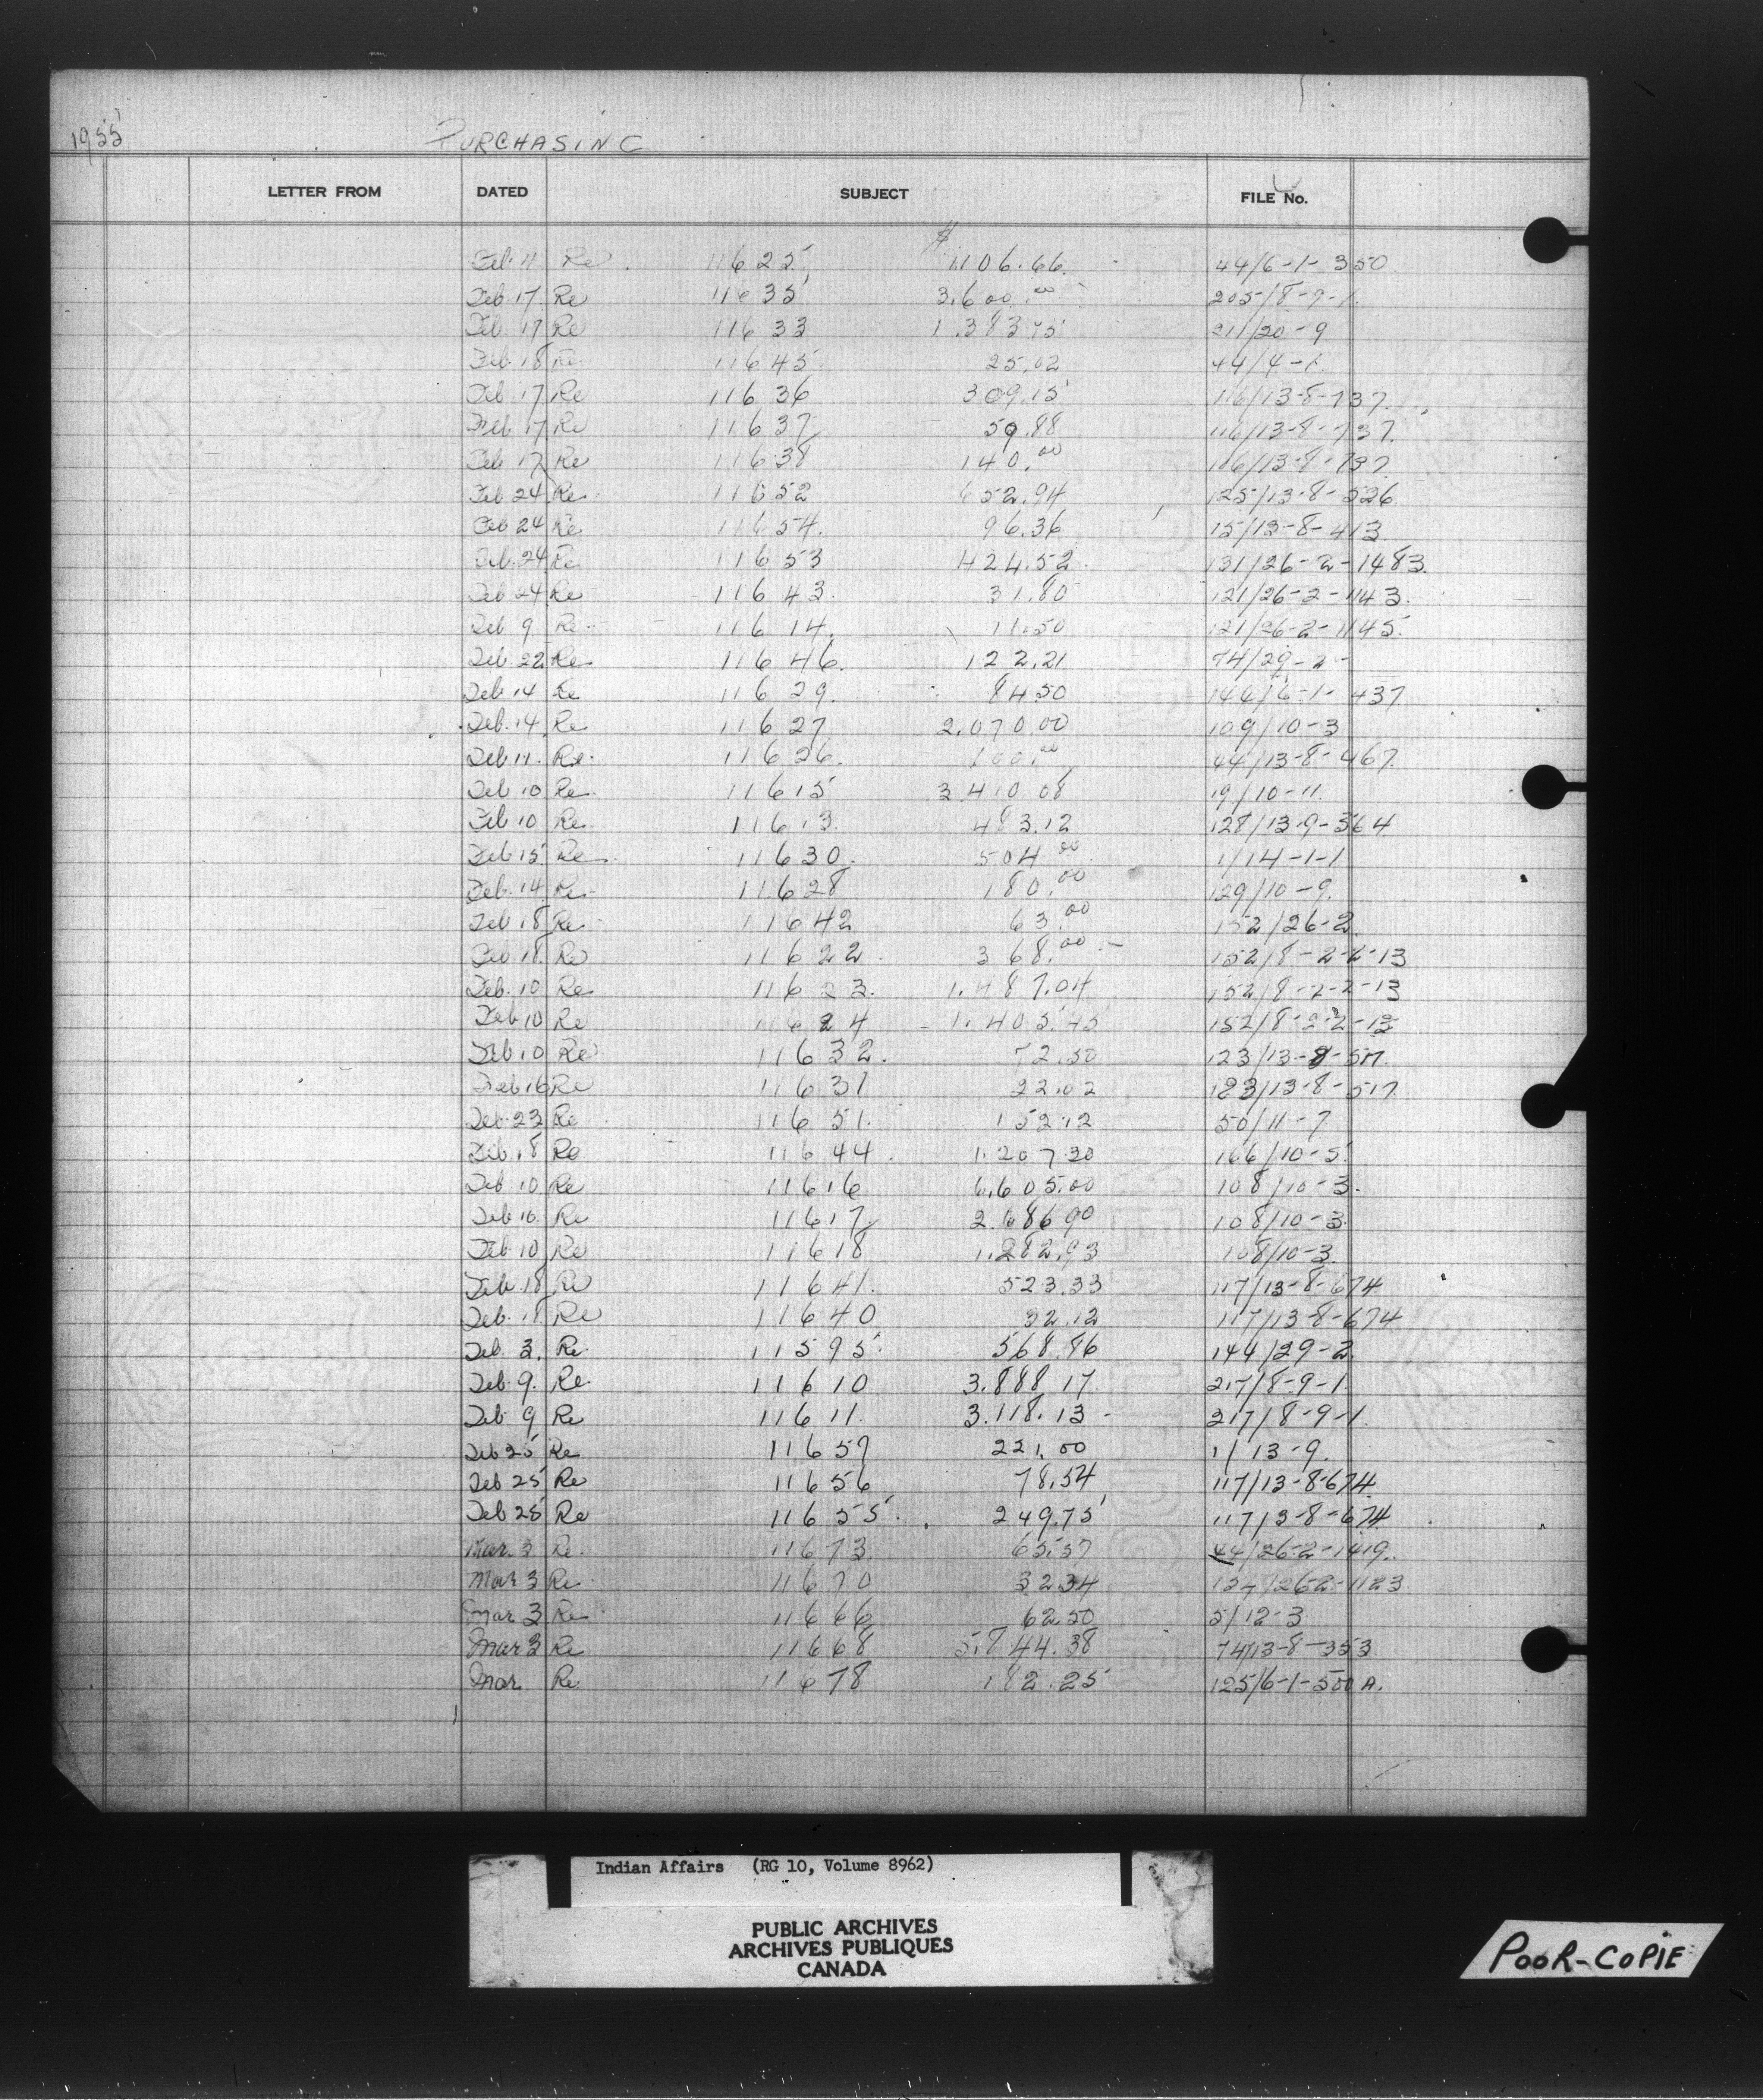 1955 PURCHASING
LETTER FROM DATED SUBJECT FILE No.
$
Feb 11 Re 11625 1106.66 44/6-1-350
Feb 17 Re 11635 3,600.00 205/8-9-1
Feb 17 Re 11633 1.383 75 211/20-9
Feb 18 Re 11645 25.02 44/4-1
Feb 17 Re 11636 309.15 116/13-8-737
Feb 17 Re 11637 59.88 116/13-8-737
Feb 17 Re 11638 140.00 116/13-8-737
Feb 24 Re 11652 652.94 125/13-8-526
Feb 24 Re 11654. 96.36 15/13-8-413
Feb. 24 Re 11653 424.52 131/26-2-1483
Feb 24 Re 11643. 31.80 121/26-2-1143.
Feb 9 Re 11614. 11.50 121/26-2-1145.
Feb. 22 Re 11646. 122.21 74/29-2-
Feb 14 Re 11629. 84.50 144/6-1-437
Feb. 14 Re 11627 2.070.00 109/10-3
Feb 11. Re. 11626. 100.00 44/13-8-467
Feb 10 Re. 11615 3410 08 19/10-11.
Feb 10 Re 11613. 483.12 128/13-9-364
Feb 15. Re 11630. 504.00 1/14-1-1
Feb. 14 Re 11628 180.00 129/10-9.
Feb 18 Re 11642 63.00 152/26-2.
Feb 18 Re 11622. 368.00 152/8-2-2-13
Feb. 10 Re 11623. 1.487.04 152/8-2-2-13
Feb 10 Re 11624 1.405.45 152/8-2-2-13
Feb 10 Re 11632. 72.50 123/13-8-517.
Feb 16 Re 11631 22.02 123/13-8-517.
Feb. 23 Re 11651. 152.12 50/11-7
Feb. 18 Re 11644. 1.207.30 166/10-5.
Feb. 10 Re 11616 6,605.00 108/10-3.
Feb 10. Re 11617 2.686 90 108/10-3.
Feb. 10 Re 11618 1.282.93 108/10-3.
Feb. 18 Re 11641. 523.33 117/13-8-674
Feb. 18 Re 11640 32.12 117/13-8-674
Feb. 3. Re. 11595. 568.86 144/29-2.
Feb. 9. Re. 11610 3.888 17. 217/8-9-1.
Feb 9 Re 11611. 3.118.13 - 217/8-9-1.
Feb 25 Re 11657 221.00 1/13-9.
Feb 25 Re 11656 78.54 117/13-8-674.
Feb 25 Re 11655. 249.75 117/13-8-674.
Mar. 3 Re. 11673 65.57 44/26-2-1419.
Mar 3 Re. 11670 32 34 /26-2-1123
Mar 3 Re. 11666 62.50 5/12-3
Mar 3 Re 11668 5.844.38 74/13-8-353
Mar Re 11678 182.25 125/6-1-500 A.
Indian Affairs (RG 10, Volume 8962)
PUBLIC ARCHIVES
ARCHIVES PUBLIQUES
CANADA
POOR-COPIE